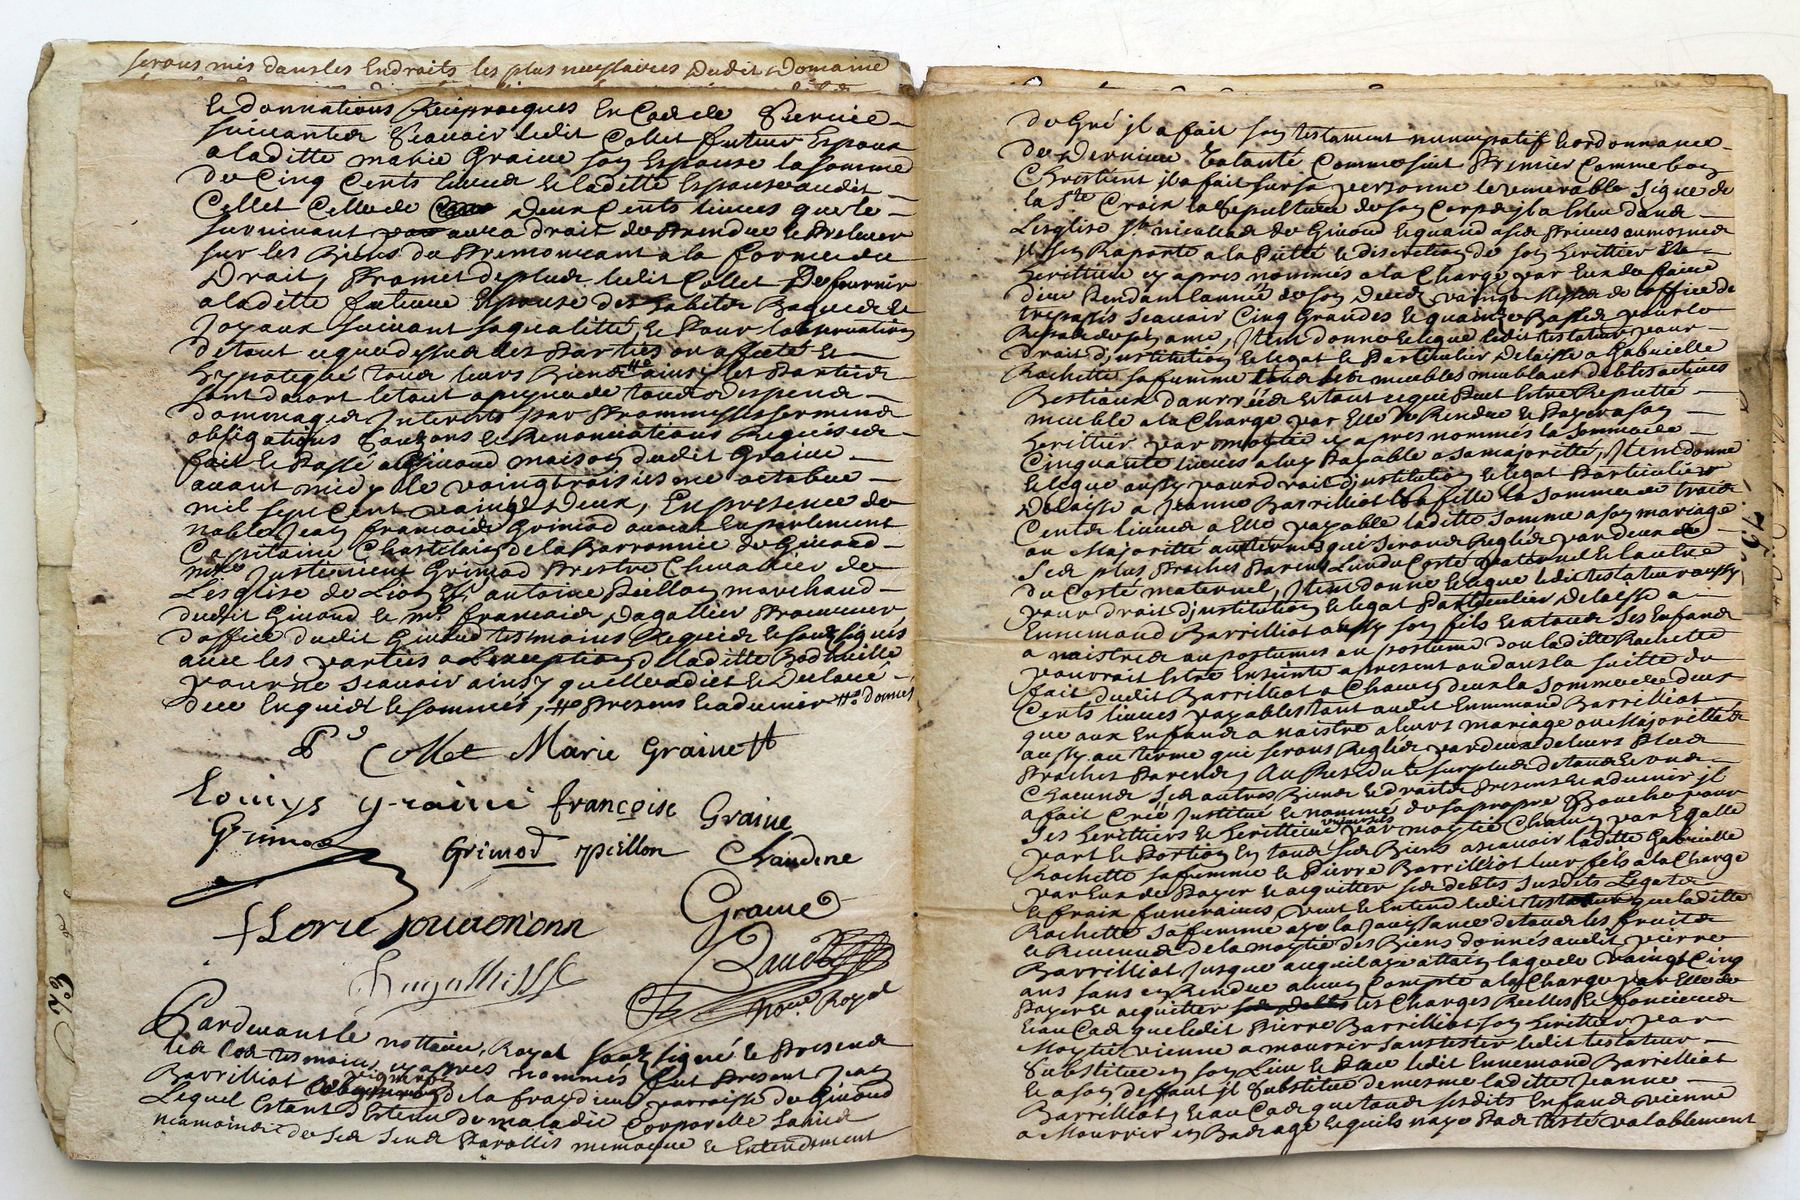 serons mis dans les Endroits les plus necessaires Dudit Domaine
le donnations Reciproeques En Cas de Survie
suivantes Scavoir ledit Collet futeur Espoux
a laditte marie Graine son Espouse la somme
de Cinq Cents livres & laditte Espouse audit
Collet Celle de deux Cents livres que le
survivant aura droit de Prendre & Prelever
sur les Biens du Premourant a la forme du
Droit, Promet de plus ledit Collet De fournir
a laditte future Espouse des habits Bagues &
Joyaux suivant sa qualitté, & Pour l'observation
de tout ce que dessus les Parties on affecté &
hypotequé tous leurs Biens ainsy les Parties
sont d'acort & tout a peyne de tous despens
dommages Interets par Prommesses serments
obligations & Renonciations Requises
fait & Passé a Givord maison dudit Graine
avant midy le vaingtroisiesme octobre
mil sept cent vaingt deux, En presence de
noble Jean francois Grimod avocat En parlement
Capitaine Chastelain de la Barronnie de Givord
Justinient Grimod Prestre Chevallier de
L'esglise de Lion antoine Piellon marchand
dudit Givord & mr francois Dagallier Procureur
d'office dudit Givord tesmoins Requis & soussignés
avec les parties a l'exception de laditte Bodtuille
pour ne scavoir ainsy quelle a dict & Declaré
de ce Enquise & sommée, presens & advenir donnés
P Collet Marie Grainett
Louys graine françoise Graine
Grimod Grimod piellon Claudine
Graine
florie
nore Royal
Pardevant le nottaire Royal soubsigné & Presens
les tesmoins cy apres nommés fut Present Jean
Barrilliot vigneron de la fraydiere parroisse de Givord
Lequel Estant Detenu de maladie Corporelle sain
neamoins de ses sens Parolles memoire & Entendement
73
de Gré il a fait son testament nuncupatif & ordonnance
de Derniere Volonté Comme suit Premier Comme bon
Chrestient il a fait sur sa personne le venerable Signe de
la Ste Croix la Sepulture de son Corps il a Esleu dans
L'esglise St nicolas de Givord & quand a ses frais aumosnes
Il s'en Raporte a la Pietté & discretion de son heritier &
heritiere cy apres nommés a la Charge par Eux de faire
dire Pendant l'année de son Deces vaingt Messes de l'office des
trepassés scavoir Cinq Grandes & quainze Basses pour le
Repos de son ame, Item donne & legue ledit testateur pour
droit d'institution & legat & Particulier delaisse a Gabrielle
Rochette sa femme tous ses meubles meublans debtes actives
Bestiaux danrrées & tout ce qui Peut Estre Reputté
meuble a la Charge par Elle de Rendre & Payer a son
heritier par moytié cy apres nommés la somme de
Cinquante livres a luy Payable a sa majoritté, Item donne
& legue aussy pour droit d'institution & legat Particulier
Delaisse a Jeanne Barrilliot sa fille la Somme de trois
Cents livres a Elle payable laditte somme a son mariage
ou Majoritté aux termes qui serons Reglés par deux de
Ses plus Proches Parens L'un du Costé paternel & l'autre
du Costé maternel, Item donne & legue ledit testateur aussy
pour droit d'institution & legat Particulier Delaisse a
Ennemond Barrilliot aussy son fils & a tous Ses Enfans
a naistre ou postumes ou postume dont laditte Rochette
pourroit Estre Enseinte a present ou dans la suitte du
fait dudit Barrilliot a Chacun deux la Somme de deux
Cents livres payables tant audit Ennemond Barrilliot
que aux Enfans a naistre a leurs mariage ou Majoritté &
aussy au terme qui serons Reglés par deux de leurs Plus
Proches Parens, Au Residu & surplus de tous & uns
Chacuns Ses autres Biens & droits Presens & advenir il
a fait Créé Institué & nommé de sa propre Bouche pour
ses heritiers & heritiere universels par moytié Chacun par Egalle
part & Portion En tous Ses Biens ascavoir laditte Gabrielle
Rochette sa femme & Pierre Barrilliot leur fils a la Charge
par Eux de Payer & acquitter ses debtes Susdits Legats
& frais funeraires, veut & Entend ledit testateur que laditte
Rochette sa femme aye la Jouissance de tous les fruits
& Revenus de la moytié des Biens donnés audit pierre
Barrilliot Jusque a ce quil aye attain l'age de vaingt Cinq
ans sans en Rendre aucun Compte a la Charge par Elle de
Payer & acquitter les Charges Reelles & foncieres
& au Cas que ledit Pierre Barrilliot son heritier par
Moytié vienne a mourrir sans tester ledit testateur
Substitue en son Lieu & Place ledit Ennemond Barrilliot
& a son deffaut il Substitue de mesme laditte Jeanne
Barrilliot, & au Cas que tous sesdits Enfans vienne
a Mourrir en Bas age & quils naye Pas testé valablement
75